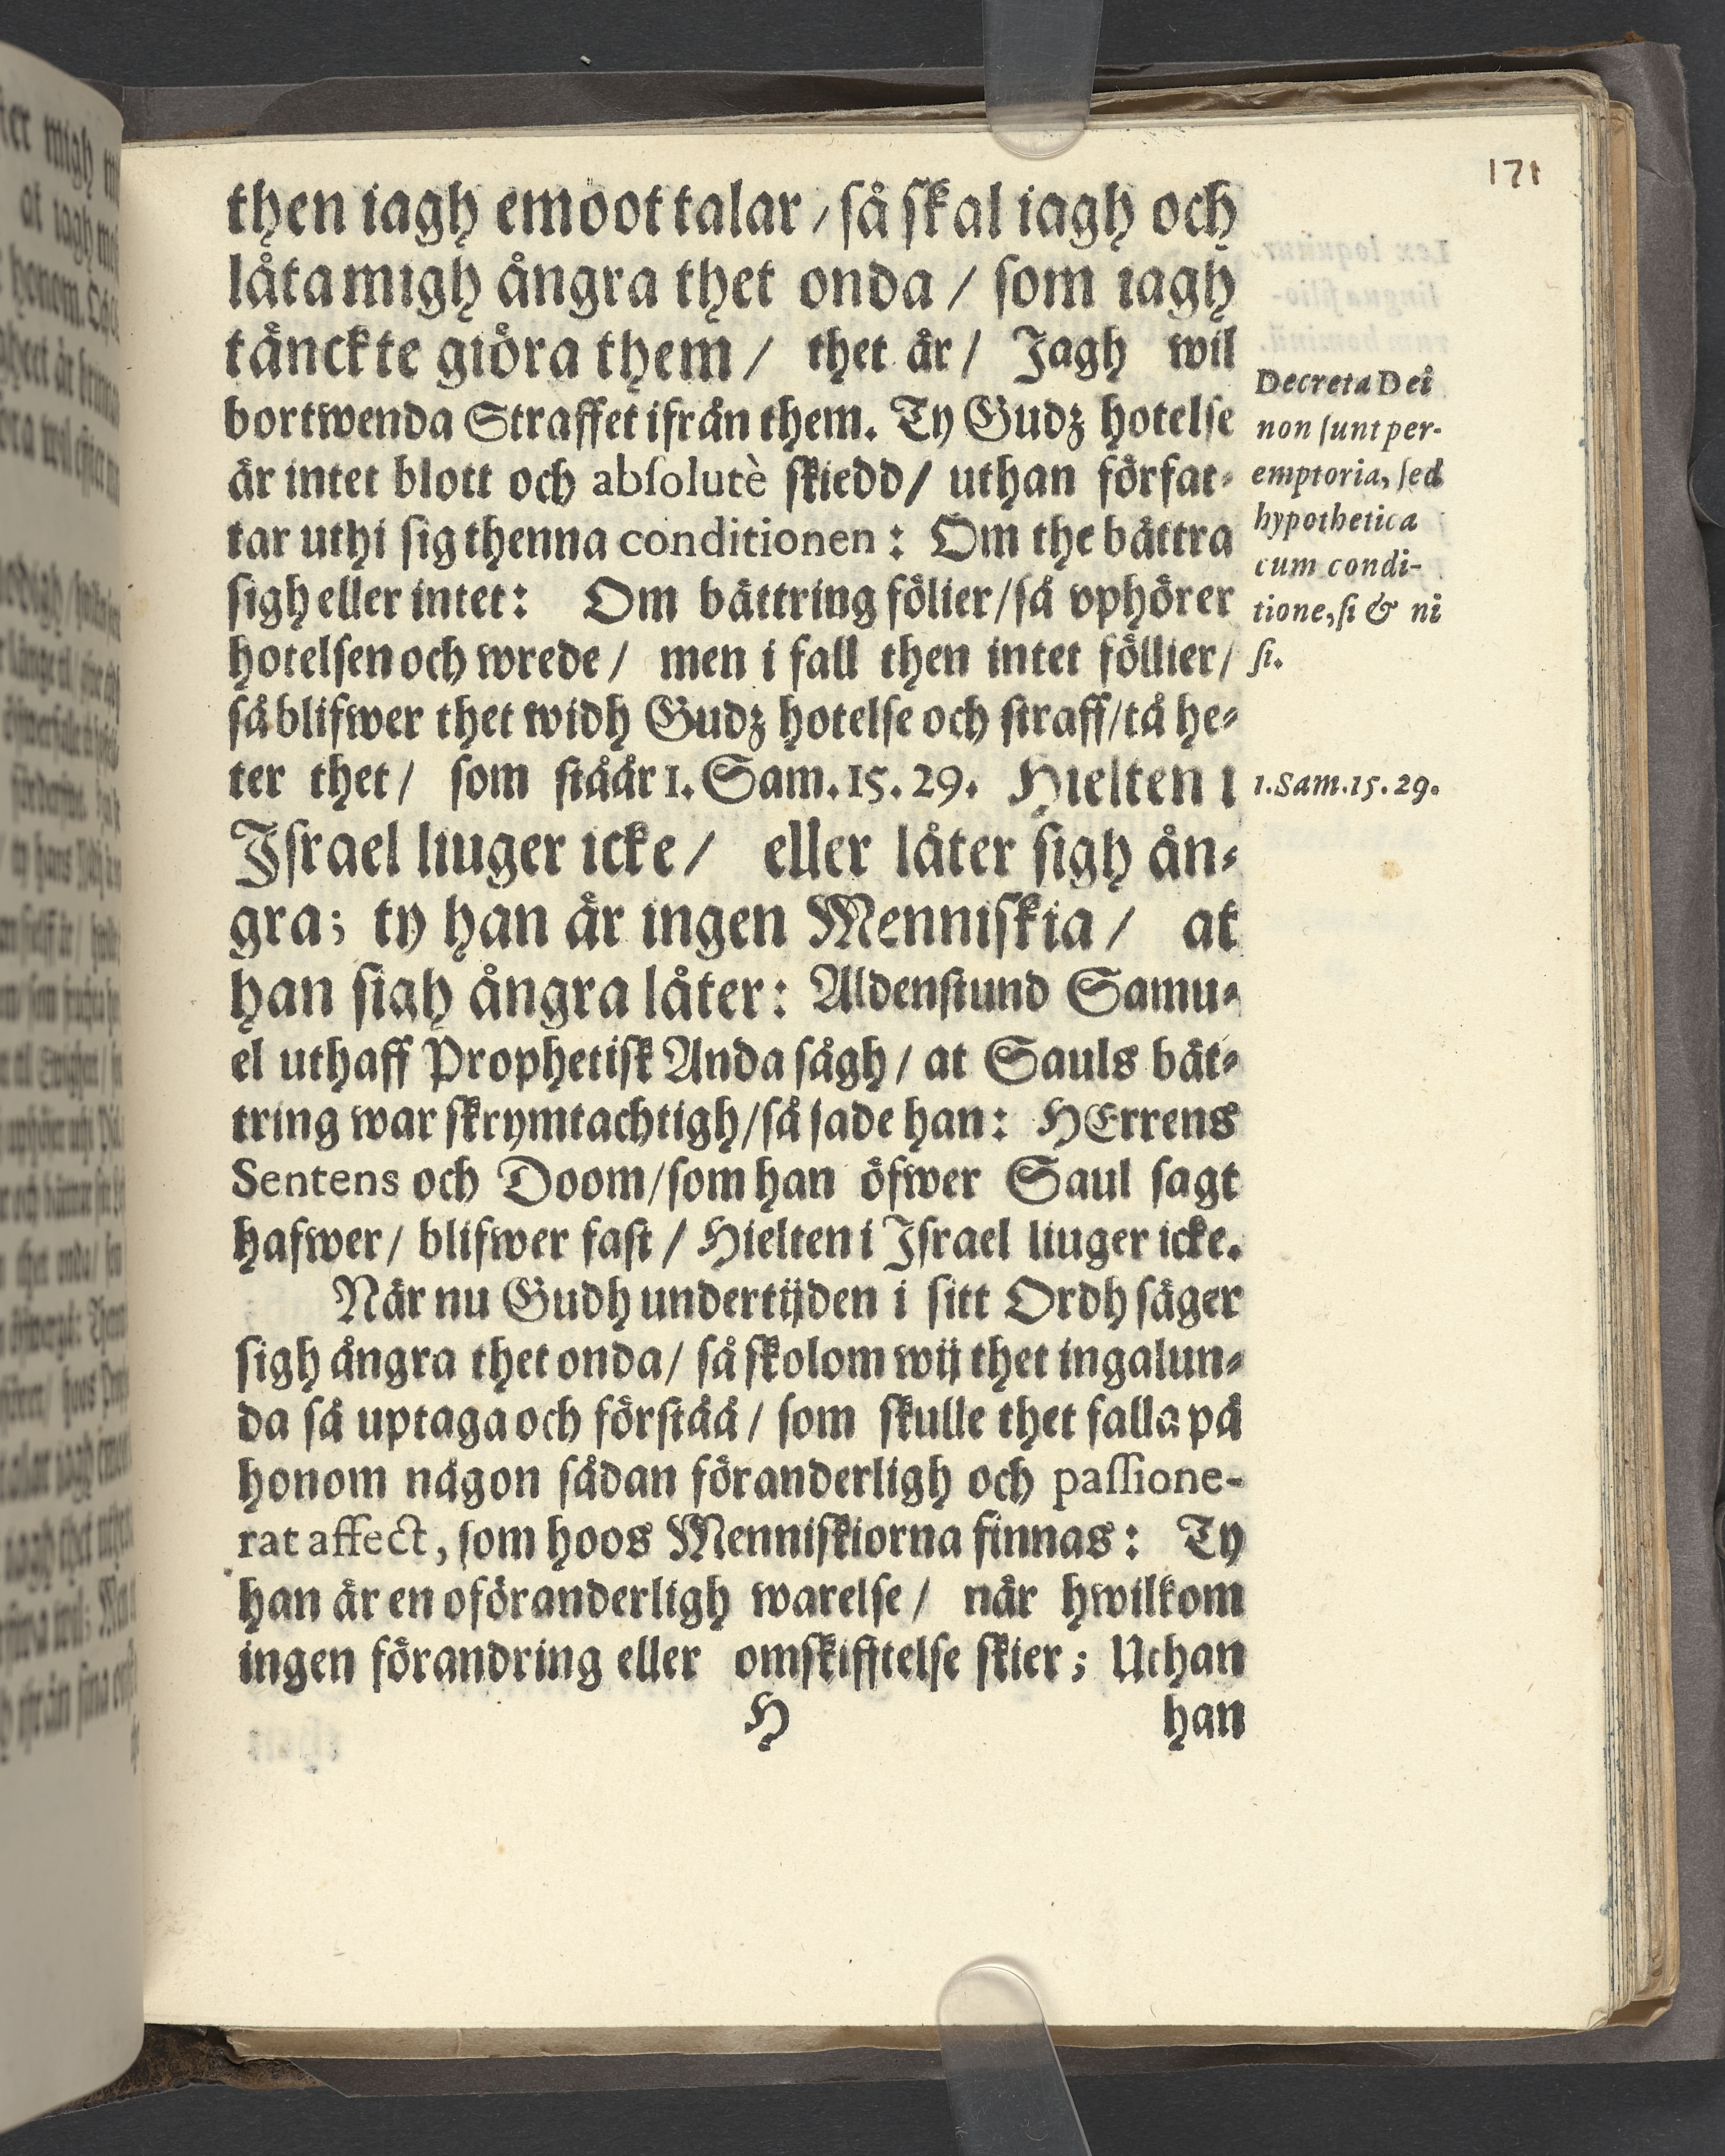 171
then iagh emoot talar / så skal iagh och
låta migh ångra thet onda / som iagh
tånckte giöra them / thet år / Jagh wil
bortwenda Straffet ifrån them. Ty Gudz hotelse
år intet blott och absolutè skiedd / uthan förfat-
tar uthi sig thenna conditionen : Om the båttra
sigh eller intet : Om båttring fölier / så vphörer
hotelsen och wrede / men i fall then intet föllier /
så blifwer thet widh Gudz hotelse och straff / tå he-
ter thet / som ståår 1. Sam. 15. 29. Hielten i
Jsrael liuger icke / eller låter sigh ån-
gra; ty han år ingen Menniskia / at
han sigh ångra låter : Aldenstund Samu-
el uthaff Prophetisk Anda sågh / at Sauls båt-
tring war skrymtachtigh / så sade han : HErrens
Sentens och Doom / som han öfwer Saul sagt
hafwer / blifwer fast / Hielten i Jsrael liuger icke.
Når nu Gudh undertijden i sitt Ordh såger
sigh ångra thet onda / så skolom wij thet ingalun-
da så uptaga och förståå / som skulle thet falla på
honom någon sådan föranderligh och passione-
rat affect, som hoos Menniskiorna finnas : Ty
han år en oföranderligh warelse / når hwilkom
ingen förandring eller omskifftelse skier ; Uthan
H han
Decreta Dei
non sunt per-
emptoria, sed
hypothetica
cum condi-
tione, si & ni
si.
1. Sam. 15. 29.